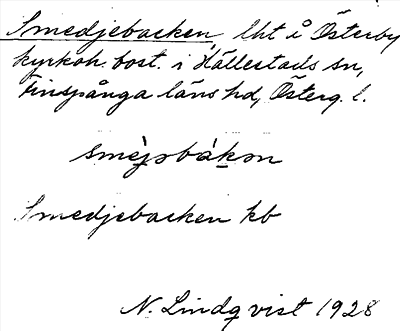 Smedjebacken, lht å Österby
kyrkoh. bost. i Hällestads sn,
Finspånga läns hd, Österg. l.
smèjɔbákɔn
Smedjebacken kb
N. Lindqvist 1928